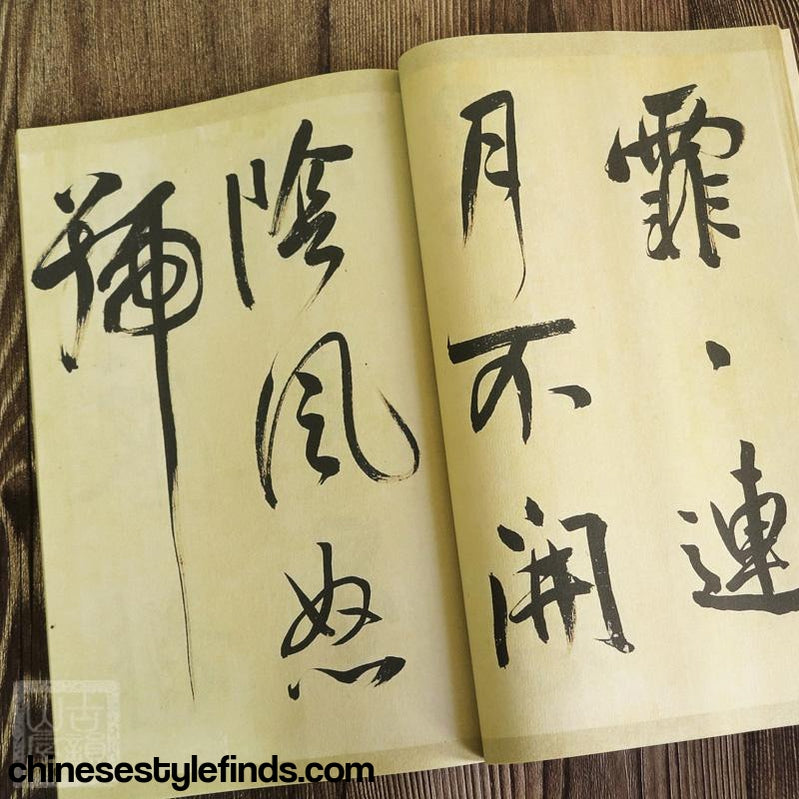 霏、連
月不開
陰風怒
號
chinesestylefinds.com